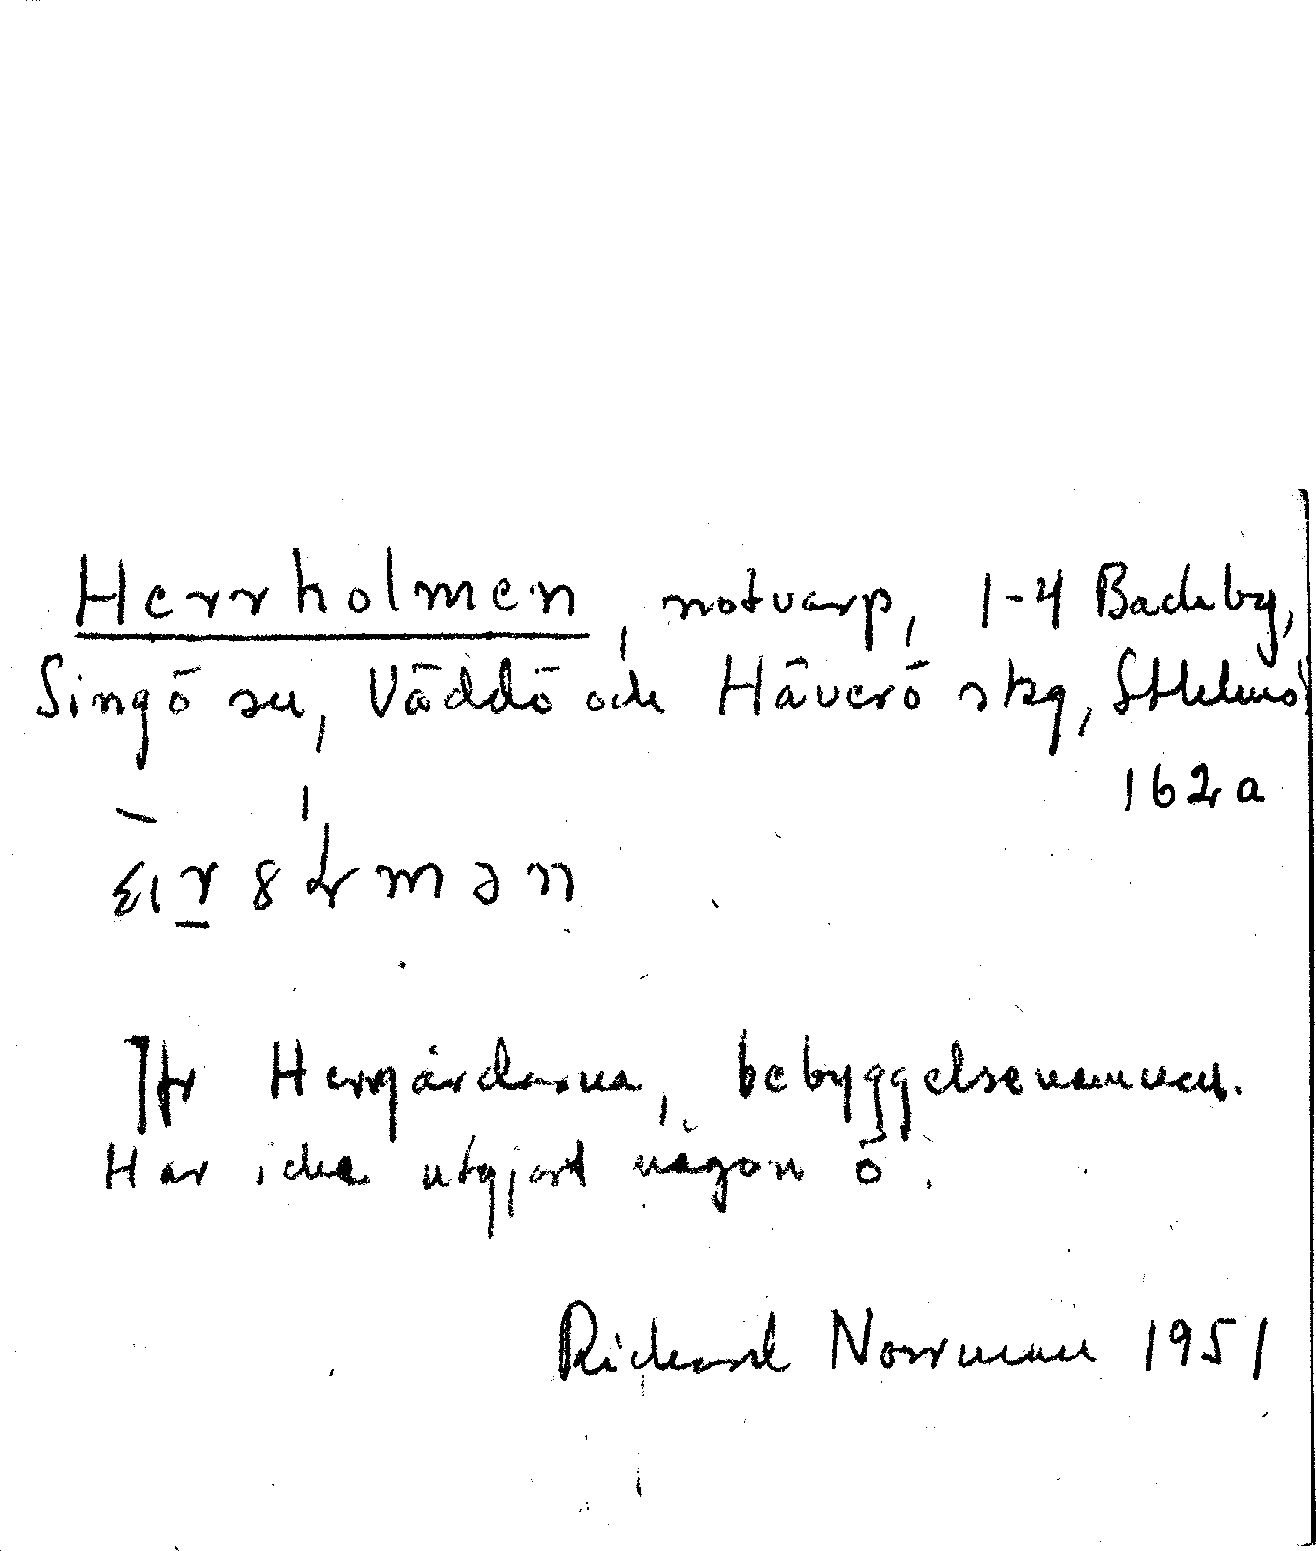 Herrholmen, notvarp, 1-4 Backby,
Singö sn, Väddö och Häverö skg, Sthlms l
162 a
Jfr Herrgårdarna, bebyggelsenamnen.
Har icke utgjort någon ö.
Rickard Norrman 1951